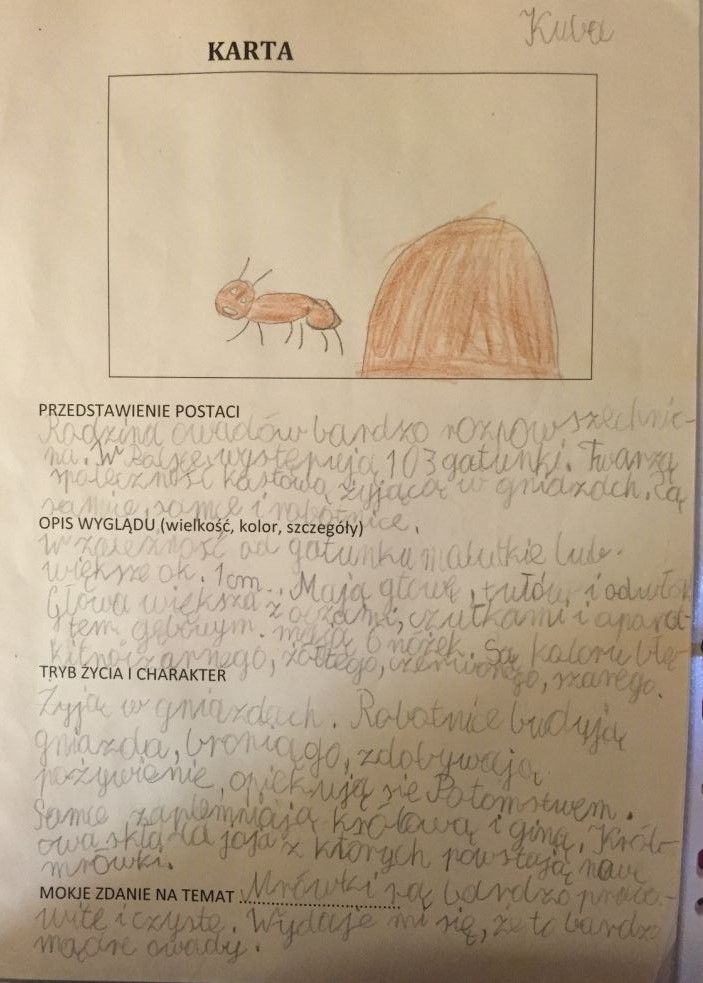 Kuba
KARTA
PRZEDSTAWIENIE POSTACI
Rodzina owadów bardzo rozpowszechnio-
na. W Polsce występują 103 gatunki. Tworzą
społeczność kastową żyjącą w gniazdach. Są
samice, samce i robotnice.
OPIS WYGLĄDU (wielkość, kolor, szczegóły)
W zależność od gatunku malutkie lub
większe ok. 1cm. Mają głowę, tułów i odwłok
Głowa większa z oczami, czułkami i apara-
tem gębowym. mają 6 nóżek. Są koloru błę-
kitno czarnego, żółtego, czerwonego, szarego.
TRYB ŻYCIA I CHARAKTER
Żyją w gniazdach. Robotnice budują
gniazda, bronią go, zdobywają
pożywienie, opiekują się Potomstwem.
Samce zapłemniają królową i giną. Król-
owa składa jaja z których powstają nowe
mrówki.
MOKJE ZDANIE NA TEMAT Mrówki są bardzo praco-
wite i czyste. Wydaje mi się, że to bardzo
mądre owady.